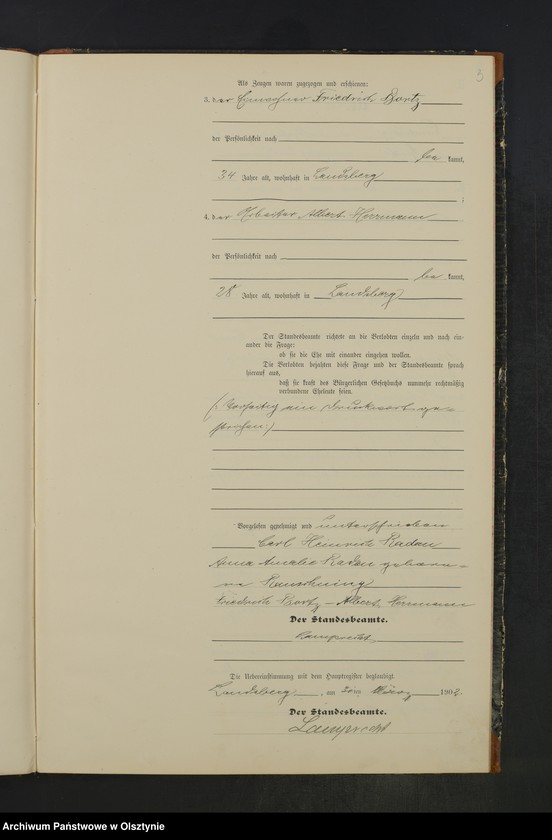 3
Als Zeugen waren zugezogen und erschienen:
3. der Einwohner Friedrich Bortz
der Persönlichkeit nach
be kannt,
34 Jahre alt, wohnhaft in Landsberg
;
4. der Arbeiter Albert Herrmann
der Persönlichkeit nach
be kannt,
28 Jahre alt, wohnhaft in Landsberg
Der Standesbeamte richtete an die Verlobten einzeln und nach ein-
ander die Frage:
ob sie die Ehe mit einander eingehen wollen.
Die Verlobten bejahten diese Frage und der Standesbeamte sprach
hierauf aus,
daß sie kraft des Bürgerlichen Gesetzbuchs nunmehr rechtmäßig
verbundene Eheleute seien.
(: Vorseitig ein Druckwort ge-
strichen :)
Vorgelesen, genehmigt und unterschrieben
Carl Heinrich Radau
Anna Amalie Radau gebore-
ne Rauschning
Friedrich Bortz – Albert Herrmann
Der Standesbeamte.
Lamprecht
Die Uebereinstimmung mit dem Hauptregister beglaubigt
Landsberg, am 20ten März 1902
Der Standesbeamte.
Lamprecht
Archiwum Państwowe w Olsztynie